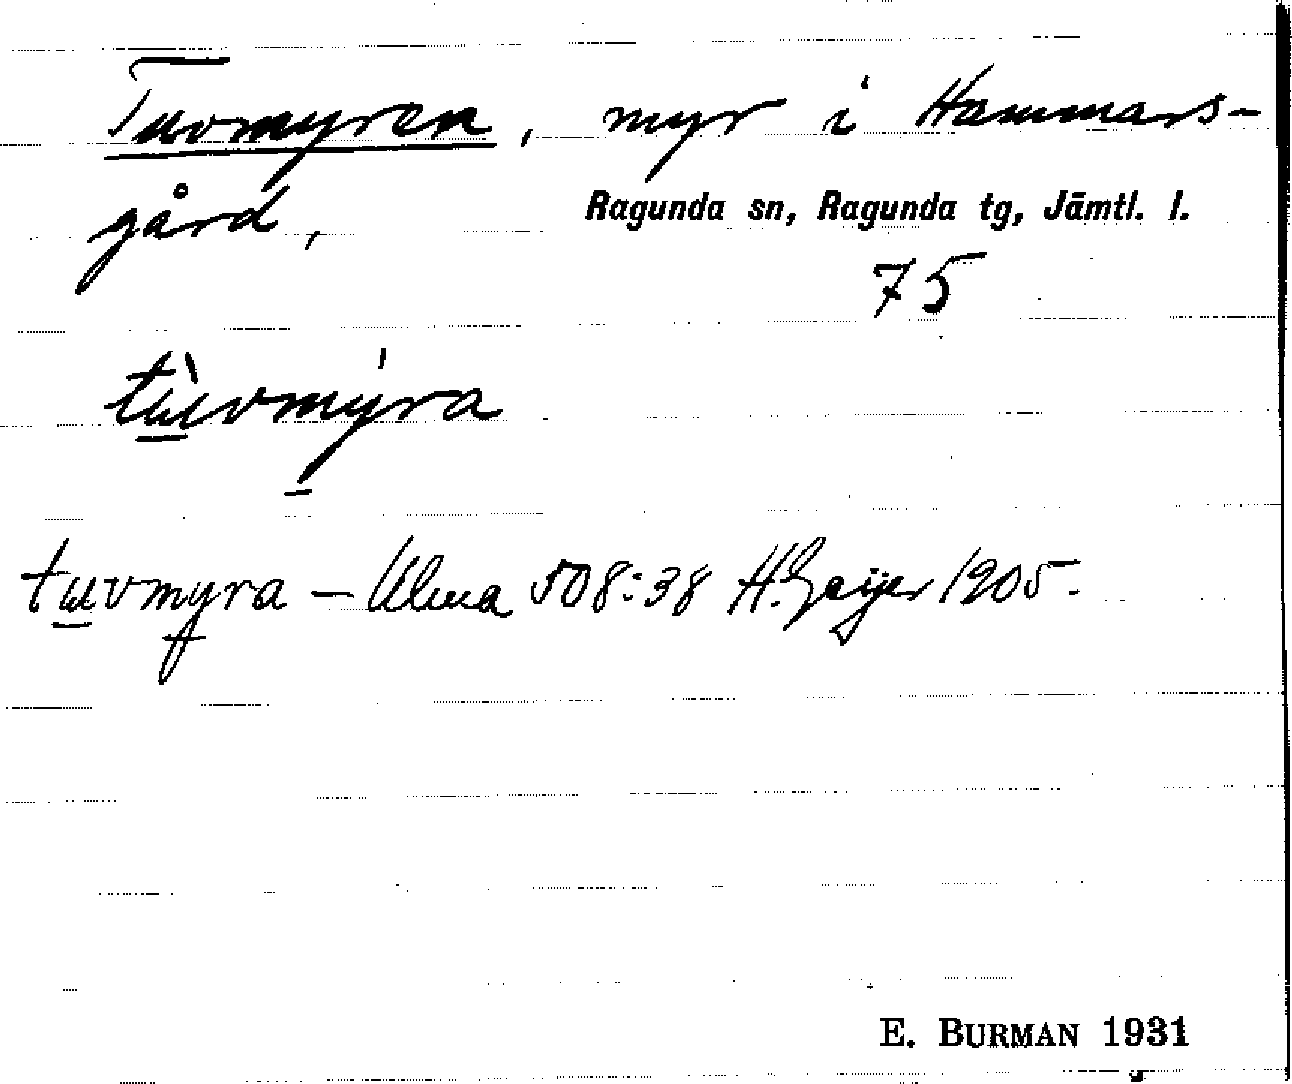 Tuvmyren, myr i Hammars-
gård, Ragunda sn, Ragunda tg, Jämtl. l.
75
tùvmýra
tuvmyra – Ulma 508:38 H. Geijer 1905.
E. BURMAN 1931